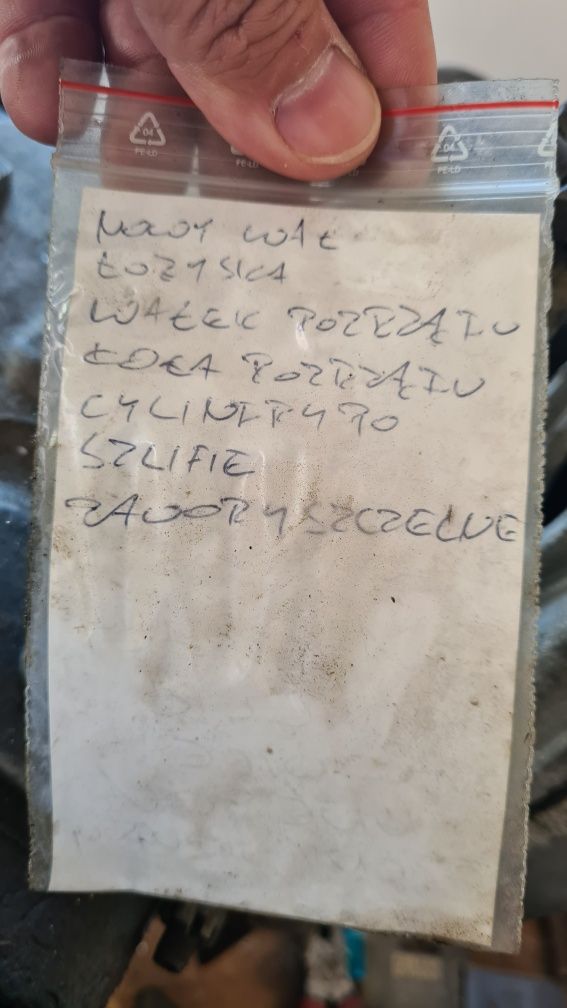 04
PE-LD
04
PE-LD
NOWY WAŁ
ŁOŻYSKA
WAŁEK ROZRZĄDU
KOŁA ROZRZĄDU
CYLINDRY PO
SZLIFIE
ZAWORY SZCZELNE